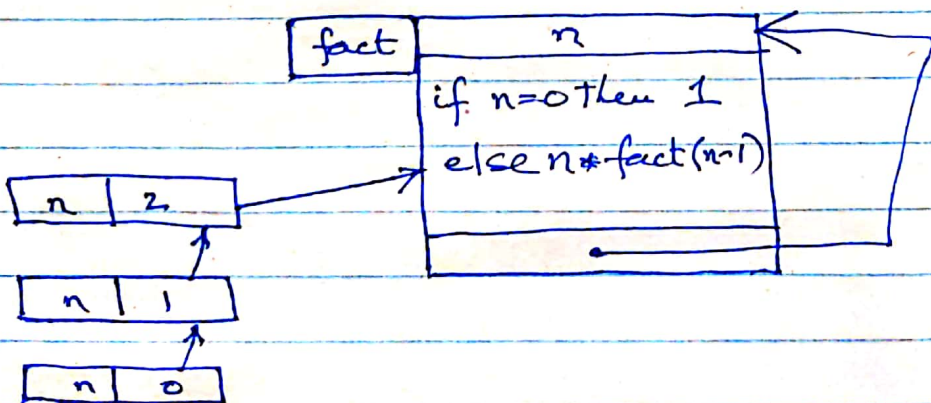 fact n
if n=0 then 1
else n*fact(n-1)
n 2
n 1
n 0